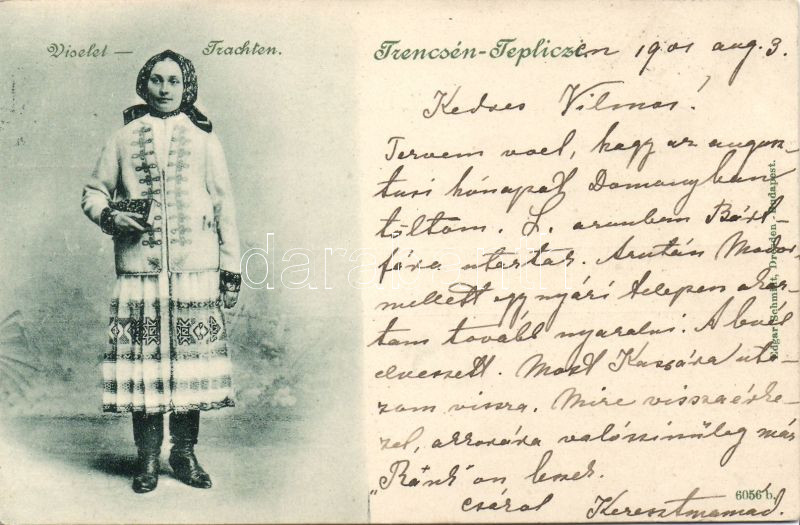 Viselet — Trachten.
Trencsén-Tepliczén 1901 aug. 3.
Kedves Vilmos!
Tervem volt, hogy az augusz-
tusi hónapot Domanyban
töltöm. L. azonban Bárt-
fára utaztak. Azután Modor
mellett egy nyári telepen akar-
tam tovább nyaralni. A
elveszett. Most Kassára uta-
zom vissza. Mire visszaérke-
zel, akkorára valószinüleg már
"Ránk" on leszek.
csókol Keresztmamád.
6056 b.
Edgar Schmidt, Dresden - Budapest.
darabanth